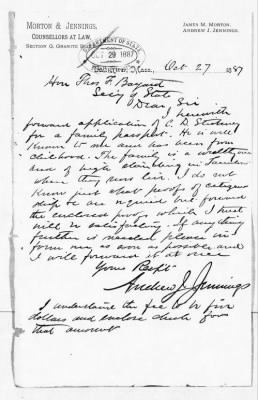 MORTON & JENNINGS,
COUNSELLORS AT LAW,
SECTION G. GRANITE
JAMES M. MORTON.
ANDREW J. JENNINGS.
DEPARTMENT OF STATE
29 1887
Fall River, Mass., Oct 27 1887
Hon Thos F. Bayard
Secy of State
Dear Sir
I herewith
forward application of C. D. 
for a family passport. He is well
known to me and has been from
childhood. The family is a wealthy one
and of high standing in Taunton
where they now live. I do not
know just what proofs of citizen
ship to are required but forward
the enclosed proof which I trust
will be satisfactory. If anything
further is needed please in
form me as soon as possible and
I will forward it at once
Yours Respt
Andrew J. Jennings
I understand the fee to be five
dollars and enclose check for
that amount